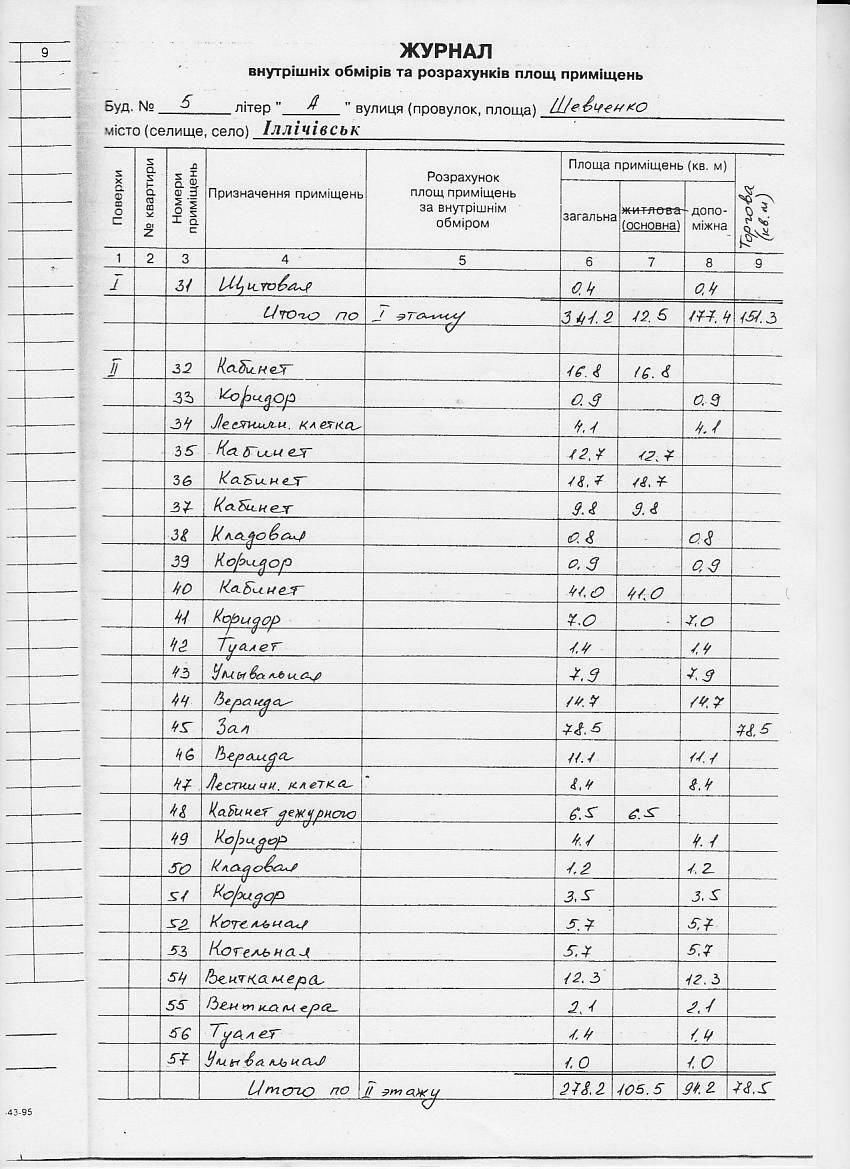 9
ЖУРНАЛ
внутрішніх обмірів та розрахунків площ приміщень
Буд. № 5 літер " А " вулиця (провулок, площа) Шевченко
місто (селище, село) Іллічівськ
Поверхи № квартири Номери приміщень Призначення приміщень Розрахунок площ приміщень за внутрішнім обміром Площа приміщень (кв. м) загальна житлова (основна) допоміжна Торгова (кв. м)
1 2 3 4 5 6 7 8 9
I 31 Щитовая 0,4 0,4
Итого по I этажу 341.2 12.5 177.4 151.3
II 32 Кабинет 16.8 16.8
33 Коридор 0.9 0.9
34 Лестничн. клетка 4.1 4.1
35 Кабинет 12.7 12.7
36 Кабинет 18.7 18.7
37 Кабинет 9.8 9.8
38 Кладовая 0.8 0.8
39 Коридор 0.9 0.9
40 Кабинет 41.0 41.0
41 Коридор 7.0 7.0
42 Туалет 1.4 1.4
43 Умывальная 7.9 7.9
44 Веранда 14.7 14.7
45 Зал 78.5 78.5
46 Веранда 11.1 11.1
47 Лестничн. клетка 8.4 8.4
48 Кабинет дежурного 6.5 6.5
49 Коридор 4.1 4.1
50 Кладовая 1.2 1.2
51 Коридор 3.5 3.5
52 Котельная 5.7 5.7
53 Котельная 5.7 5.7
54 Венткамера 12.3 12.3
55 Венткамера 2.1 2.1
56 Туалет 1.4 1.4
57 Умывальная 1.0 1.0
Итого по II этажу 278.2 105.5 94.2 78.5
43-95